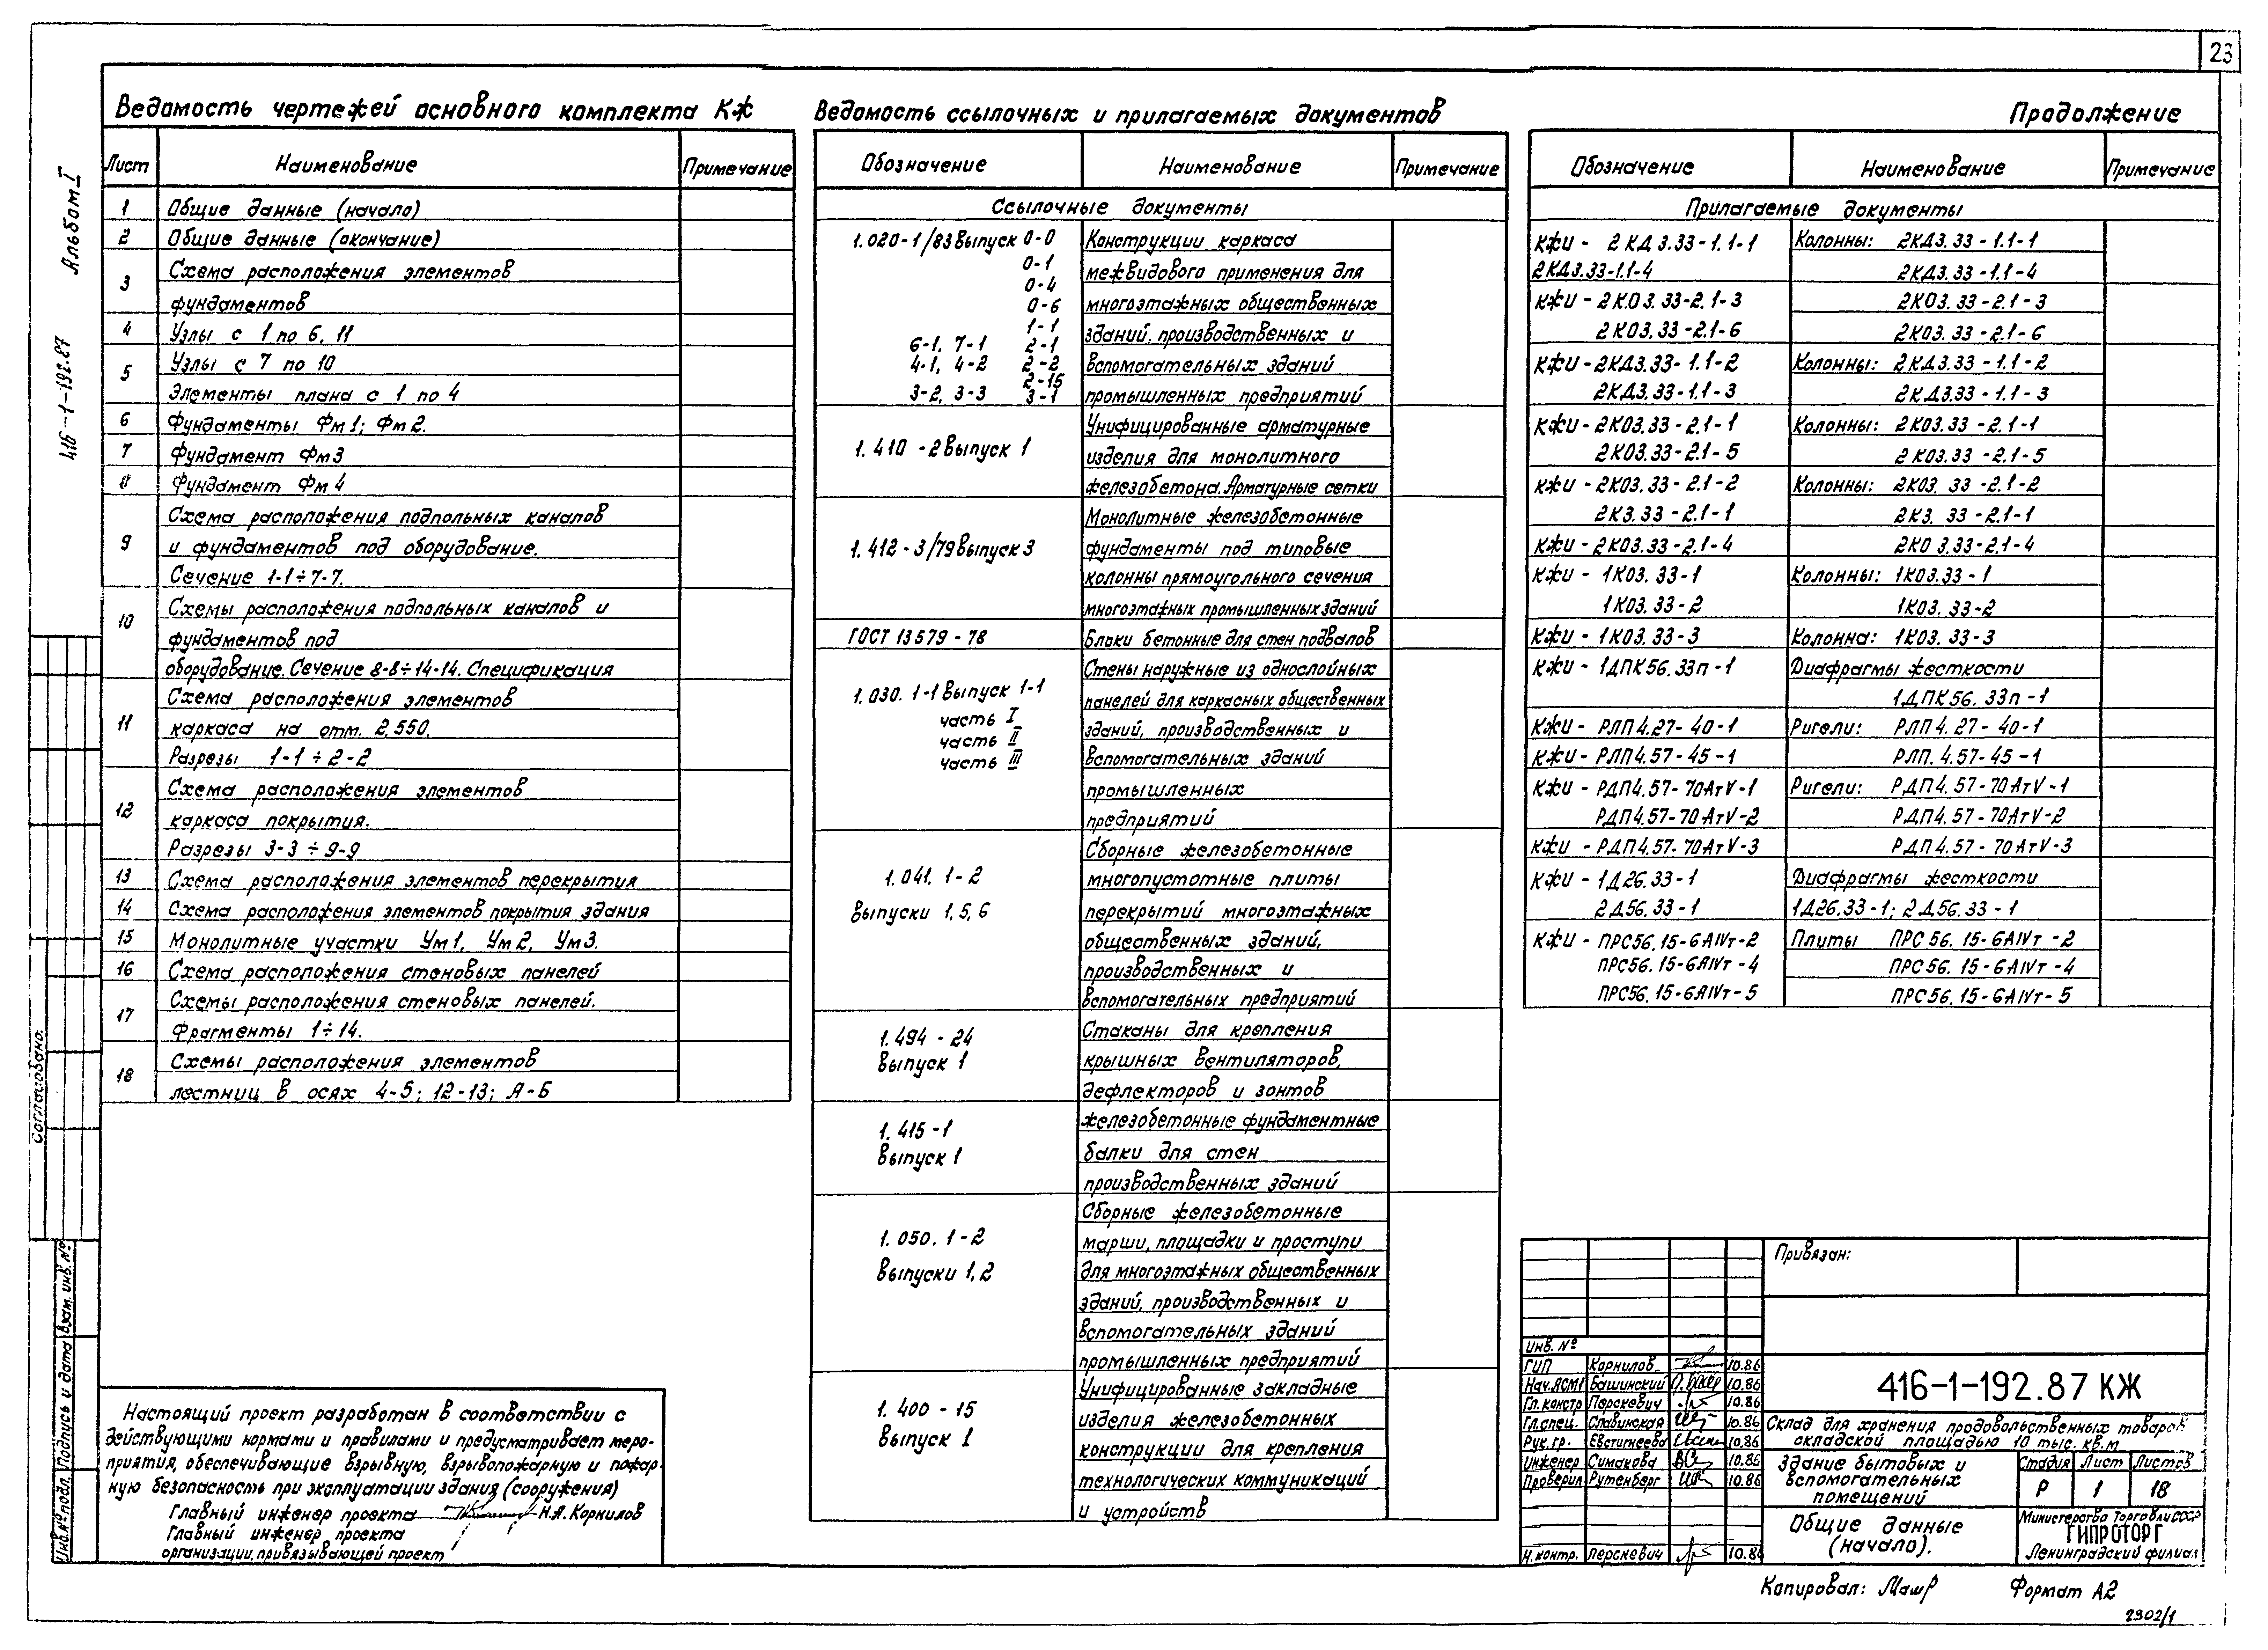 23
Альбом I
416-1-192.87
Ведомость чертежей основного комплекта КЖ
Лист Наименование Примечание
1 Общие данные (начало)
2 Общие данные (окончание)
3 Схема расположения элементов
фундаментов
4 Узлы с 1 по 6, 11
5 Узлы с 7 по 10
Элементы плана с 1 по 4
6 Фундаменты Фм1; Фм2.
7 Фундамент Фм3
8 Фундамент Фм4
9 Схема расположения подпольных каналов
и фундаментов под оборудование.
Сечение 1-1÷7-7.
10 Схемы расположения подпольных каналов и
фундаментов под
оборудование. Сечение 8-8÷14-14. Спецификация
11 Схема расположения элементов
каркаса на отм. 2,550.
Разрезы 1-1÷2-2
12 Схема расположения элементов
каркаса покрытия.
Разрезы 3-3÷9-9
13 Схема расположения элементов перекрытия
14 Схема расположения элементов покрытия здания
15 Монолитные участки Ум1, Ум2, Ум3.
16 Схема расположения стеновых панелей
17 Схемы расположения стеновых панелей.
Фрагменты 1÷14.
18 Схемы расположения элементов
лестниц в осях 4-5; 12-13; А-Б
Ведомость ссылочных и прилагаемых документов
Обозначение Наименование Примечание
Ссылочные документы
1.020-1/83 выпуск 0-0 Конструкции каркаса
0-1 межвидового применения для
0-4
0-6 многоэтажных общественных
1-1 зданий, производственных и
6-1, 7-1 2-1
4-1, 4-2 2-2 вспомогательных зданий
2-15
3-2, 3-3 3-1 промышленных предприятий
1.410-2 выпуск 1 Унифицированные арматурные
изделия для монолитного
железобетона. Арматурные сетки
1.412-3/79 выпуск 3 Монолитные железобетонные
фундаменты под типовые
колонны прямоугольного сечения
многоэтажных промышленных зданий
ГОСТ 13579-78 Блоки бетонные для стен подвалов
1.030.1-1 выпуск 1-1 Стены наружные из однослойных
панелей для каркасных общественных
часть I зданий, производственных и
часть II
часть III вспомогательных зданий
промышленных
предприятий
1.041.1-2 Сборные железобетонные
выпуски 1,5,6 многопустотные плиты
перекрытий многоэтажных
общественных зданий,
производственных и
вспомогательных предприятий
1.494-24 Стаканы для крепления
выпуск 1 крышных вентиляторов,
дефлекторов и зонтов
1.415-1 железобетонные фундаментные
выпуск 1 балки для стен
производственных зданий
1.050.1-2 Сборные железобетонные
выпуски 1,2 марши, площадки и проступи
для многоэтажных общественных
зданий, производственных и
вспомогательных зданий
промышленных предприятий
1.400-15 Унифицированные закладные
выпуск 1 изделия железобетонных
конструкции для крепления
технологических коммуникаций
и устройств
Продолжение
Обозначение Наименование Примечание
Прилагаемые документы
КЖИ - 2КД3.33-1.1-1 Колонны: 2КД3.33-1.1-1
2КД3.33-1.1-4 2КД3.33-1.1-4
КЖИ - 2КО3.33-2.1-3 2КО3.33-2.1-3
2КО3.33-2.1-6 2КО3.33-2.1-6
КЖИ - 2КД3.33-1.1-2 Колонны: 2КД3.33-1.1-2
2КД3.33-1.1-3 2КД3.33-1.1-3
КЖИ - 2КО3.33-2.1-1 Колонны: 2КО3.33-2.1-1
2КО3.33-2.1-5 2КО3.33-2.1-5
КЖИ - 2КО3.33-2.1-2 Колонны: 2КО3.33-2.1-2
2К3.33-2.1-1 2К3.33-2.1-1
КЖИ - 2КО3.33-2.1-4 2КО3.33-2.1-4
КЖИ - 1КО3.33-1 Колонны: 1КО3.33-1
1КО3.33-2 1КО3.33-2
КЖИ - 1КО3.33-3 Колонна: 1КО3.33-3
КЖИ - 1ДПК56.33п-1 Диафрагмы жесткости
1ДПК56.33п-1
КЖИ - РЛП4.27-40-1 Ригели: РЛП4.27-40-1
КЖИ - РЛП4.57-45-1 РЛП.4.57-45-1
КЖИ - РДП4.57-70АтV-1 Ригели: РДП4.57-70АтV-1
РДП4.57-70АтV-2 РДП4.57-70АтV-2
КЖИ - РДП4.57-70АтV-3 РДП4.57-70АтV-3
КЖИ - 1Д26.33-1 Диафрагмы жесткости
2Д56.33-1 1Д26.33-1; 2Д56.33-1
КЖИ - ПРС56.15-6АIVт-2 Плиты ПРС56.15-6АIVт-2
ПРС56.15-6АIVт-4 ПРС56.15-6АIVт-4
ПРС56.15-6АIVт-5 ПРС56.15-6АIVт-5
Согласовано:
Инв.№подл. Подпись и дата Взам. инв. №
Настоящий проект разработан в соответствии с
действующими нормами и правилами и предусматривает меро-
приятия, обеспечивающие взрывную, взрывопожарную и пожар-
ную безопасность при эксплуатации здания (сооружения)
Главный инженер проекта Н.А. Корнилов
Главный инженер проекта
организации, привязывающей проект
Привязан:
Инв. №
ГИП Корнилов 10.86
Нач.АСМ1 Башинский 10.86
Гл.констр Перскевич 10.86
Гл.спец. Славинская 10.86
Рук.гр. Евстигнеева 10.86
Инженер Симакова 10.86
Проверил Рутенберг 10.86
Н.контр. Перскевич 10.86
416-1-192.87 КЖ
Склад для хранения продовольственных товаров
складской площадью 10 тыс. кв.м
Здание бытовых и
вспомогательных
помещений
Стадия Лист Листов
Р 1 18
Общие данные
(начало).
Министерство Торговли СССР
ГИПРОТОРГ
Ленинградский филиал
Копировал: Формат А2
2302/1